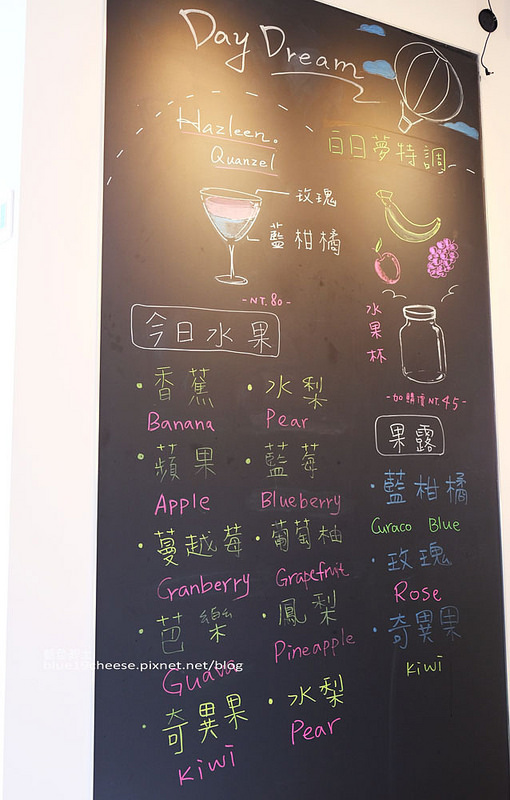 Day Dream
Hazleen.
Quanzel
白日夢特調
玫瑰
藍柑橘
-NT.80-
水果杯
-加購價NT.45-
今日水果
·香蕉
Banana
·水梨
Pear
·蘋果
Apple
·藍莓
Blueberry
·蔓越莓
Cranberry
·葡萄柚
Grapefruit
·芭樂
Guava
·鳳梨
Pineapple
·奇異果
Kiwi
·水梨
Pear
果露
·藍柑橘
Curaco Blue
·玫瑰
Rose
·奇異果
Kiwi
blue19cheese.pixnet.net/blog